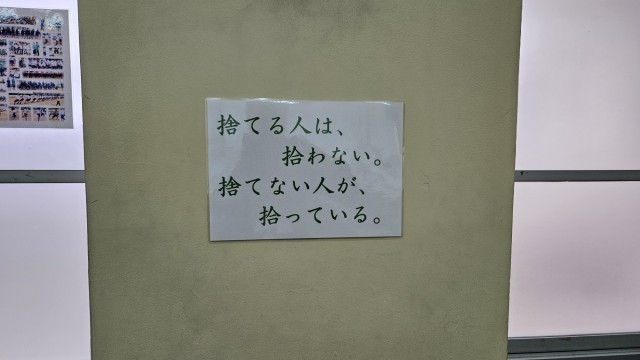 捨てる人は、
拾わない。
捨てない人が、
拾っている。